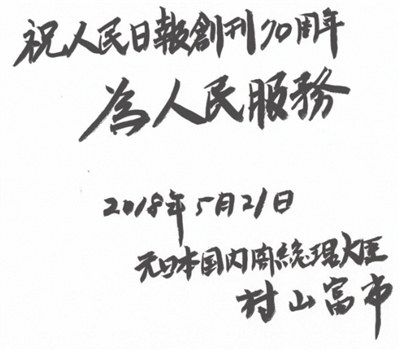 祝人民日報創刊70周年
為人民服務
2018年5月21日
元日本国内閣総理大臣
村山富市